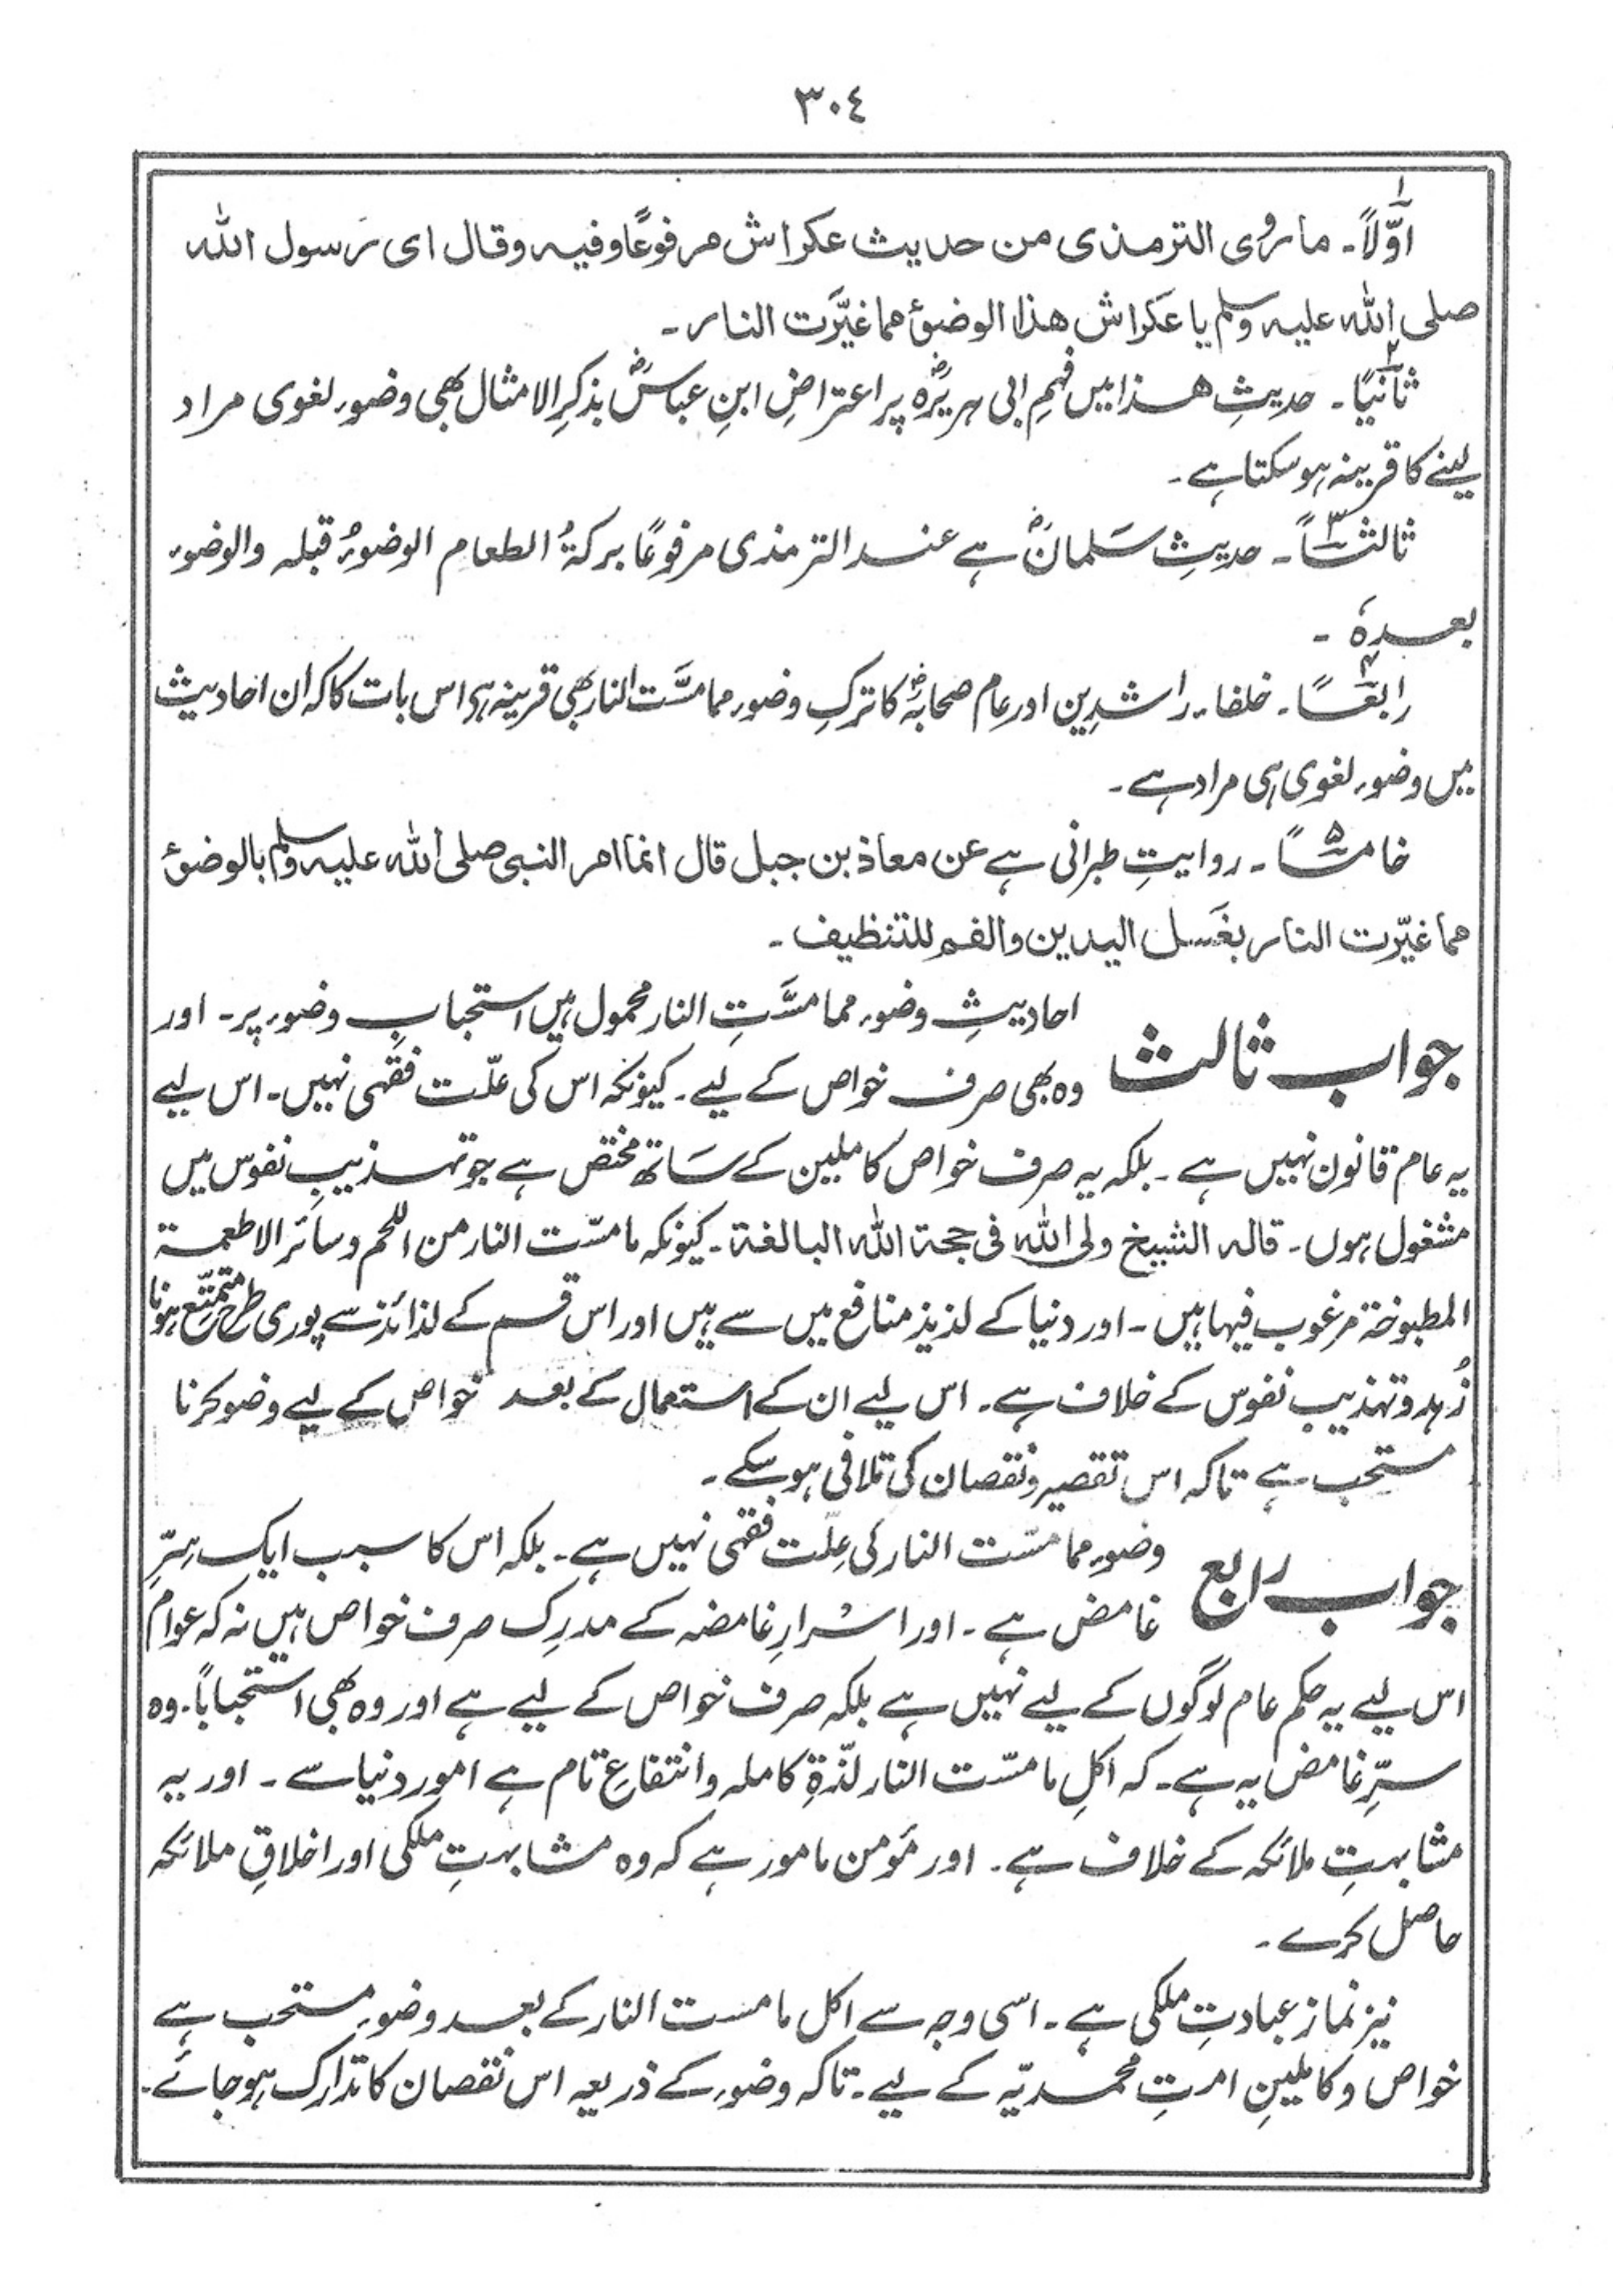 ٣٠٤
اوّلاً۔ ما رُوی الترمذی من حدیث عکراش مرفوعًا وفیہ وقال ای رَسول اللہ
صلی اللہ علیہ وسلم یا عَکراش ھذا الوضوُٴ مما غیَّرت النار۔
ثانیًا۔ حدیثِ ھذا میں فہمِ ابی ہریرہؓ پر اعتراضِ ابنِ عباسؓ بذکرِ الامثال بھی وضوء لغوی مراد
لینے کا قرینہ ہوسکتا ہے۔
ثالثًا۔ حدیثِ سَلمانؓ ہے عند الترمذی مرفوعًا برکۃُ الطعام الوضوءُ قبلہ والوضوء
بعدہٗ۔
رابعًا۔ خلفاء راشدین اور عام صحابہؓ کا ترکِ وضوء مما مسَّت النار بھی قرینہ ہے اس بات کا کہ ان احادیث
میں وضوء لغوی ہی مراد ہے۔
خامسًا۔ روایتِ طبرانی ہے عن معاذ بن جبل قال انما امر النبی صلی اللہ علیہ وسلم بالوضوُٴ
مما غیّرت النار بغَسل الیدین والفم للتنظیف۔
احادیثِ وضوء مما مسَّتِ النار محمول ہیں استحبابِ وضوء پر۔ اور
جواب ثالث وہ بھی صرف خواص کے لیے۔ کیونکہ اس کی علّت فقہی نہیں۔ اس لیے
یہ عام قانون نہیں ہے۔ بلکہ یہ صرف خواص کاملین کے سَاتھ مختص ہے جو تہذیبِ نفوس میں
مشغول ہوں۔ قالہ الشیخ ولی اللہ فی حجۃ اللہ البالغۃ۔ کیونکہ ما مسّت النار من اللحم وسائر الاطعمۃ
المطبوخۃ مرغوب فیہا ہیں۔ اور دنیا کے لذیذ منافع میں سے ہیں اور اس قسم کے لذائذ سے پوری طرح متمتّع ہونا
زُہد و تہذیبِ نفوس کے خلاف ہے۔ اس لیے ان کے استعمال کے بعد خواص کے لیے وضو کرنا
مستحب ہے تاکہ اس تقصیر و نقصان کی تلافی ہوسکے۔
وضوء مما مسّت النار کی عِلّت فقہی نہیں ہے۔ بلکہ اس کا سبب ایک سِرِّ
جواب رابع غامض ہے۔ اور اسْرارِ غامضہ کے مدرِک صرف خواص ہیں نہ کہ عوام
اس لیے یہ حکم عام لوگوں کے لیے نہیں ہے بلکہ صرف خواص کے لیے ہے اور وہ بھی استحباباً۔ وہ
سرِّ غامض یہ ہے۔ کہ اکلِ ما مسّت النار لذّۃِ کاملہ و انتفاعِ تام ہے امور دنیا سے۔ اور یہ
مشابہتِ ملائکہ کے خلاف ہے۔ اور مؤمن مامور ہے کہ وہ مشابہتِ ملکی اور اخلاقِ ملائکہ
حاصل کرے۔
نیز نماز عبادتِ ملکی ہے۔ اسی وجہ سے اکل ما مست النار کے بعد وضوء مستحب ہے
خواص و کاملینِ امتِ محمدیّہ کے لیے۔ تاکہ وضوء کے ذریعہ اس نقصان کا تدارک ہوجائے۔